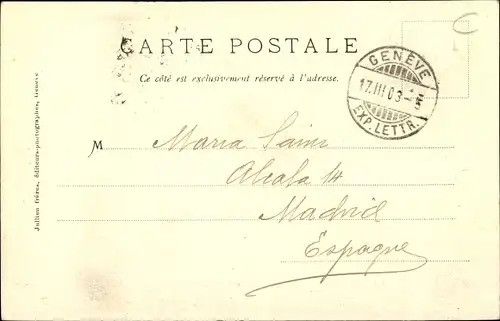 CARTE POSTALE
Ce côté est exclusivement réservé à l'adresse.
GENÈVE
17.III.03-5
EXP. LETTR.
M Maria
Alcala 14
Madrid
Espagne
Jullien frères, éditeurs-photographes, Genève